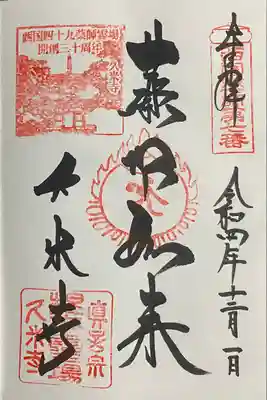 奉拝
令和四年十二月一日
薬師如来
久米寺
西国四十九薬師霊場
開創三十周年
久米寺
真言宗
久米寺